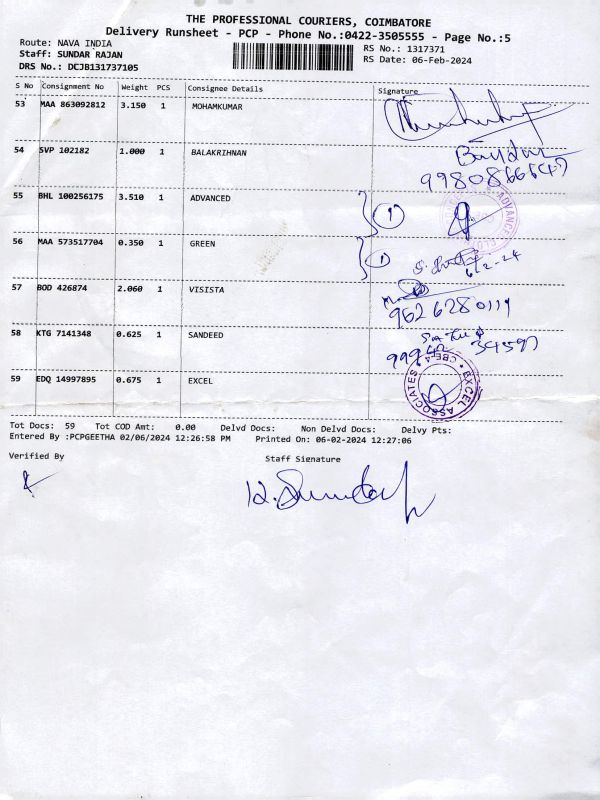 THE PROFESSIONAL COURIERS, COIMBATORE
Delivery Runsheet - PCP - Phone No.:0422-3505555 - Page No.:5
Route: NAVA INDIA
RS No.: 1317371
Staff: SUNDAR RAJAN
RS Date: 06-Feb-2024
DRS No.: DCJB131737105
S No Consignment No Weight PCS Consignee Details Signature
53 MAA 863092812 3.150 1 MOHAMKUMAR
54 SVP 102182 1.000 1 BALAKRIHNAN
55 BHL 100256175 3.510 1 ADVANCED
1
56 MAA 573517704 0.350 1 GREEN
1
6/2-24
57 BOD 426874 2.060 1 VISISTA
9626280119
58 KTG 7141348 0.625 1 SANDEED
59 EDQ 14997895 0.675 1 EXCEL
EXCEL ASSOCIATES * CBE-4 *
Tot Docs: 59 Tot COD Amt: 0.00 Delvd Docs: Non Delvd Docs: Delvy Pts:
Entered By :PCPGEETHA 02/06/2024 12:26:58 PM Printed On: 06-02-2024 12:27:06
Verified By Staff Signature